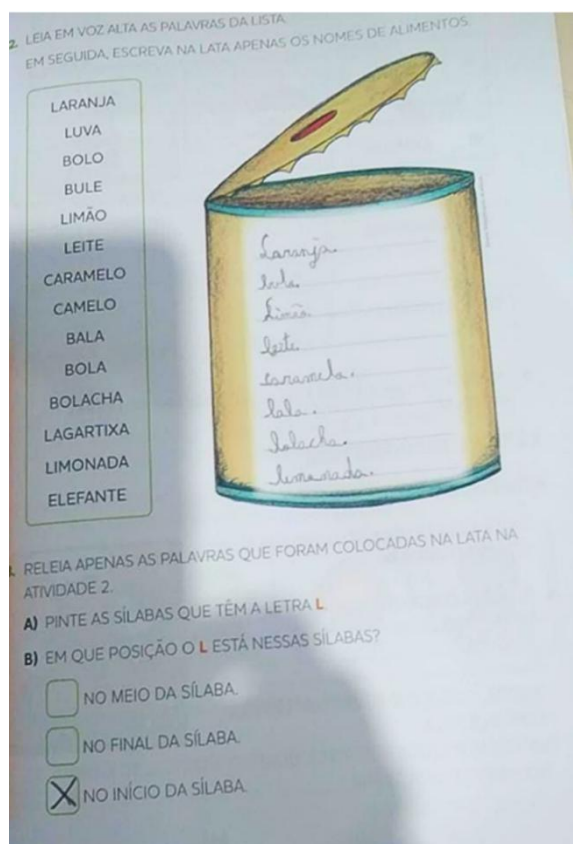 2. LEIA EM VOZ ALTA AS PALAVRAS DA LISTA.
EM SEGUIDA, ESCREVA NA LATA APENAS OS NOMES DE ALIMENTOS.
LARANJA
LUVA
BOLO
BULE
LIMÃO
LEITE
CARAMELO
CAMELO
BALA
BOLA
BOLACHA
LAGARTIXA
LIMONADA
ELEFANTE
Laranja.
bolo.
Limão.
leite.
caramelo.
bala.
bolacha.
limonada.
RELEIA APENAS AS PALAVRAS QUE FORAM COLOCADAS NA LATA NA
ATIVIDADE 2.
A) PINTE AS SÍLABAS QUE TÊM A LETRA L.
B) EM QUE POSIÇÃO O L ESTÁ NESSAS SÍLABAS?
NO MEIO DA SÍLABA.
NO FINAL DA SÍLABA.
X NO INÍCIO DA SÍLABA.